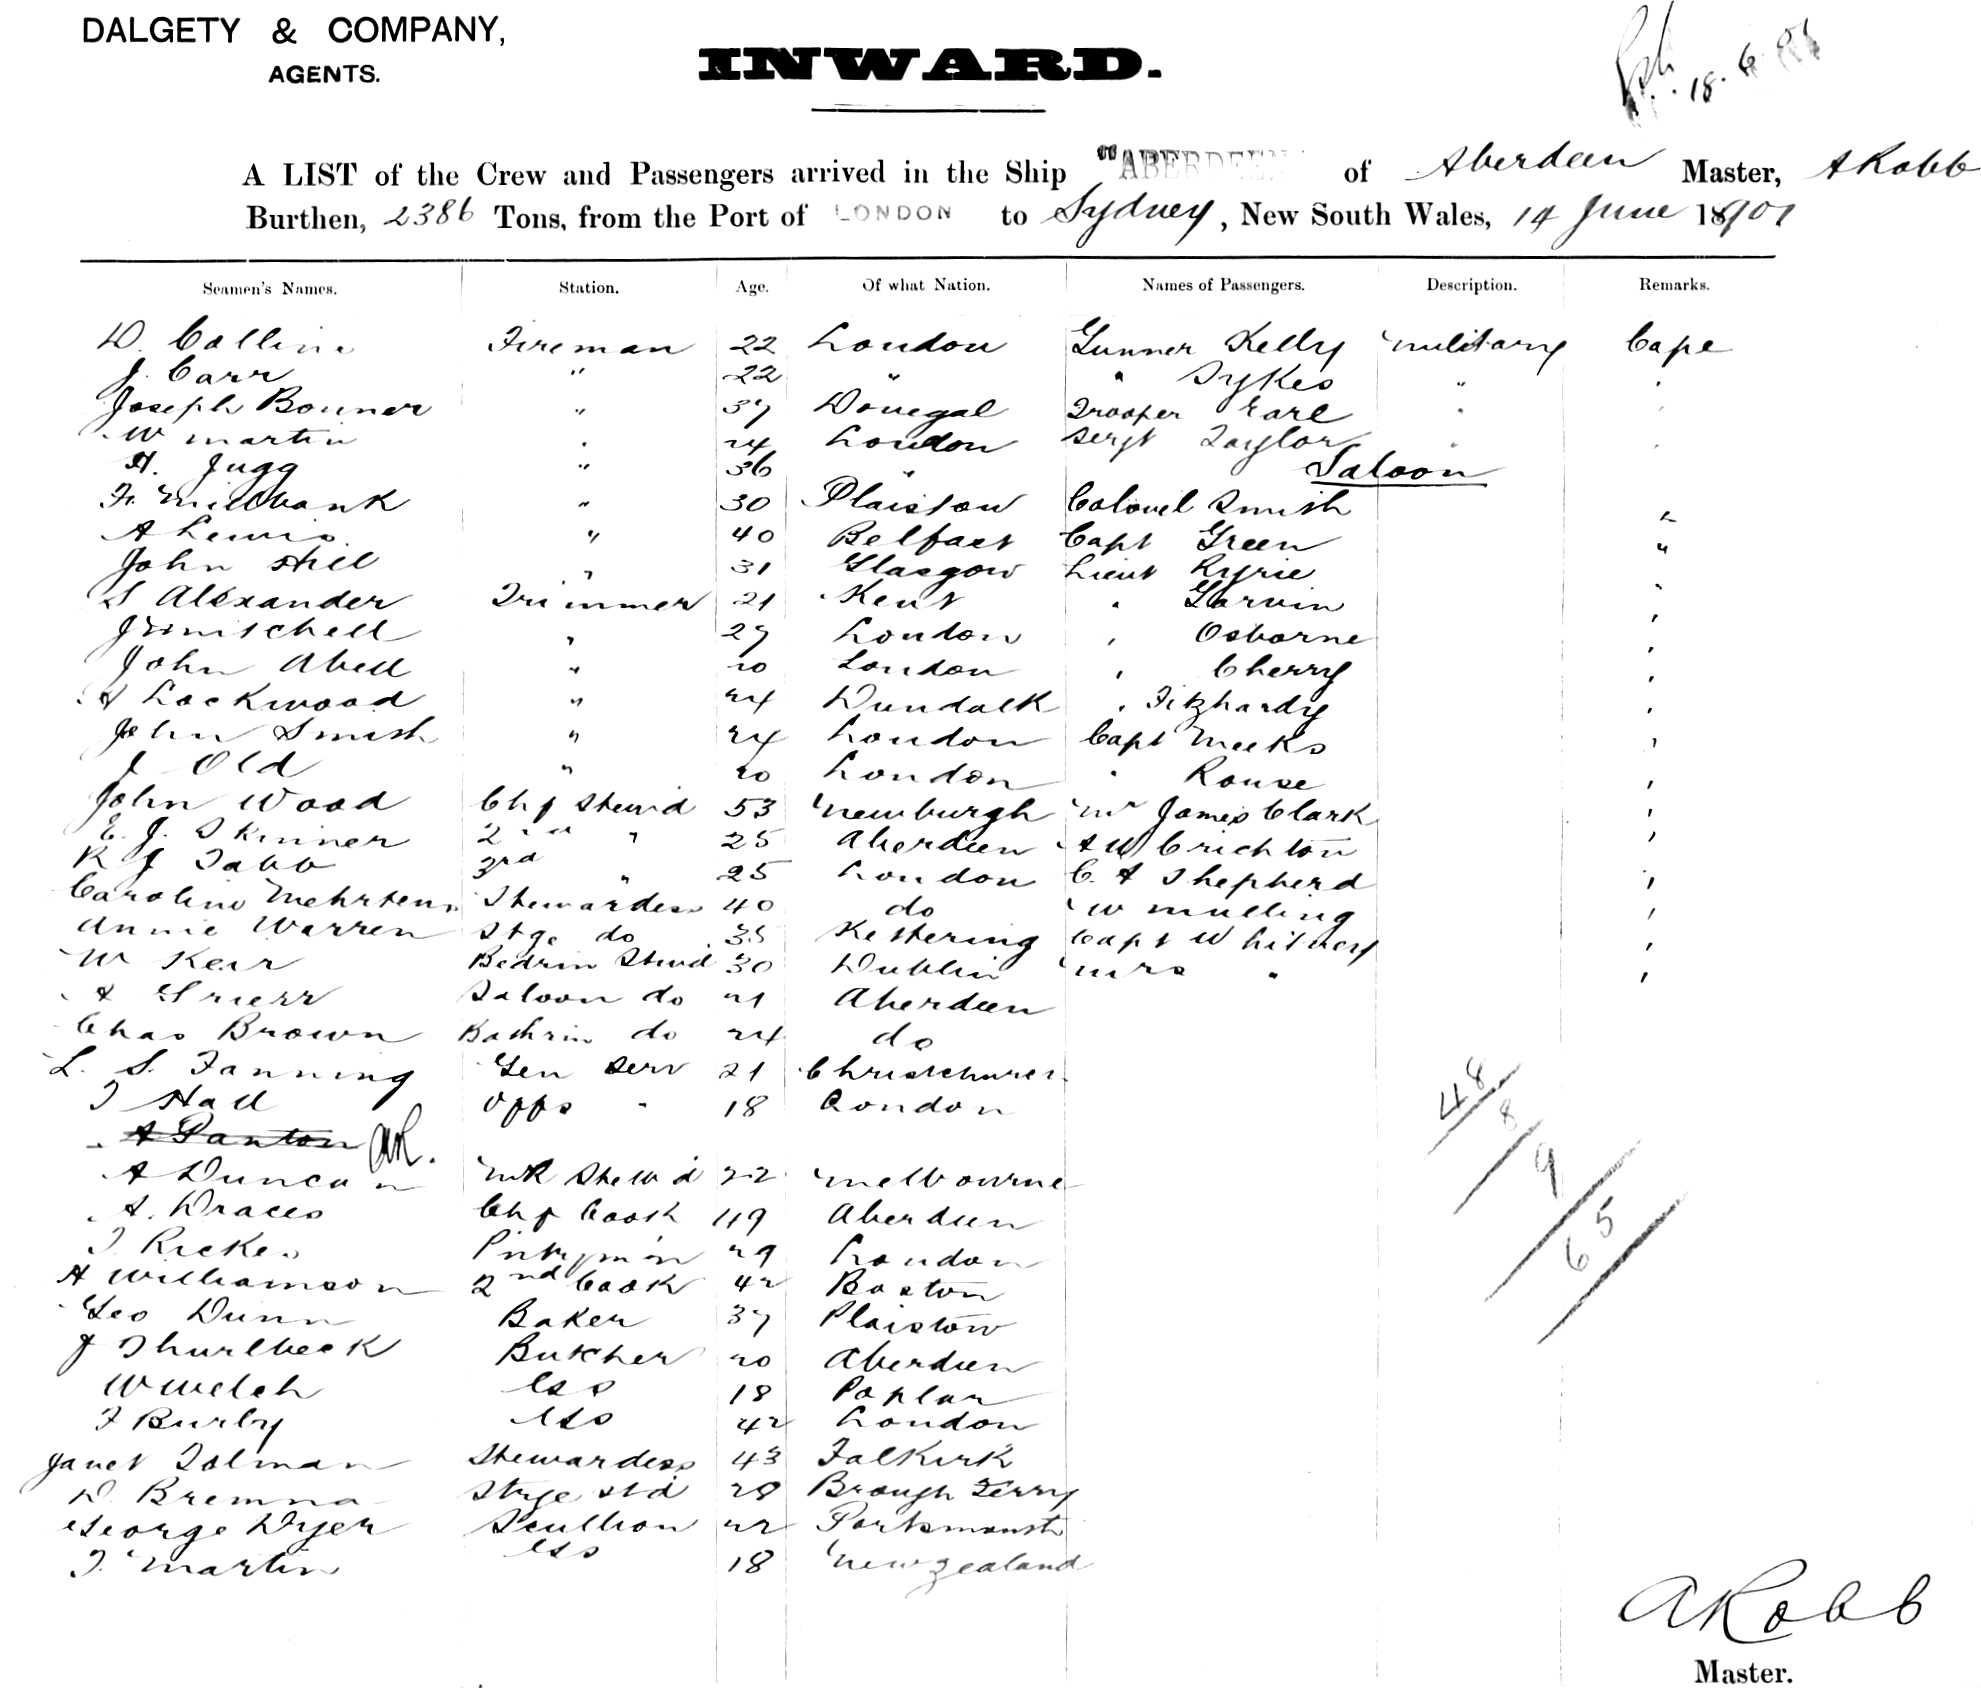 DALGETY & COMPANY,
AGENTS.
INWARD.
18. 6. 01
A LIST of the Crew and Passengers arrived in the Ship "ABERDEEN" of Aberdeen Master, A Robb
Burthen, 2386 Tons, from the Port of LONDON to Sydney, New South Wales, 14 June 18901
Seamen's Names. Station. Age. Of what Nation. Names of Passengers. Description. Remarks.
D. Collins Fireman 22 London Gunner Kelly Military Cape
J. Carr " 22 " " Sykes " "
Joseph Bonner " 37 Donegal Trooper Earl " "
W Martin " 24 London Sergt Taylor " "
H. Jugg " 36 " Saloon
F. Millbank " 30 Plaistow Colonel Smith "
A Lewis " 40 Belfast Capt Green "
John Hill " 31 Glasgow Lieut Ryrie "
S Alexander Trimmer 21 Kent " Garvin "
J Mitchell " 27 London " Osborne "
John Abell " 20 London " Cherry "
A Lockwood " 24 Dundalk " Fitzhardy "
John Smith " 24 London Capt Meeks "
J Old " 20 London " Rouse "
John Wood Chf Stewd 53 Newburgh Mr James Clark "
E. J. Skinner 2nd " 25 Aberdeen A W Crichton "
R J Tabb 3rd " 25 London C. A Shepherd "
Caroline Mehrtens Stewardess 40 do W Mulling "
Annie Warren Stge do 35 Kettering Capt Whitney "
W Keir Bedrm Stewd 30 Dublin Mrs " "
A Grierr Saloon do 21 Aberdeen
Chas Brown Bathrm do 24 do
L. S. Fanning Gen Serv 21 Christchurch
T Hall Opps " 18 London
A Panton AR.
A Duncan Mr Stewd 22 Melbourne
A. Draces Chf Cook 49 Aberdeen
T. Rickes 29 London
A Williamson 2nd Cook 42 Boston
Geo Dunn Baker 37 Plaistow
J Thurlbeck Butcher 20 Aberdeen
W Welch Ass 18 Poplar
F Burby Ass 42 London
Janet Tolman Stewardess 43 Falkirk
D. Bremna Stge Std 28 Brough Ferry
George Dyer Scullion 22 Portsmouth
T. Martin Ass 18 New Zealand
48
8
9
65
A Robb
Master.